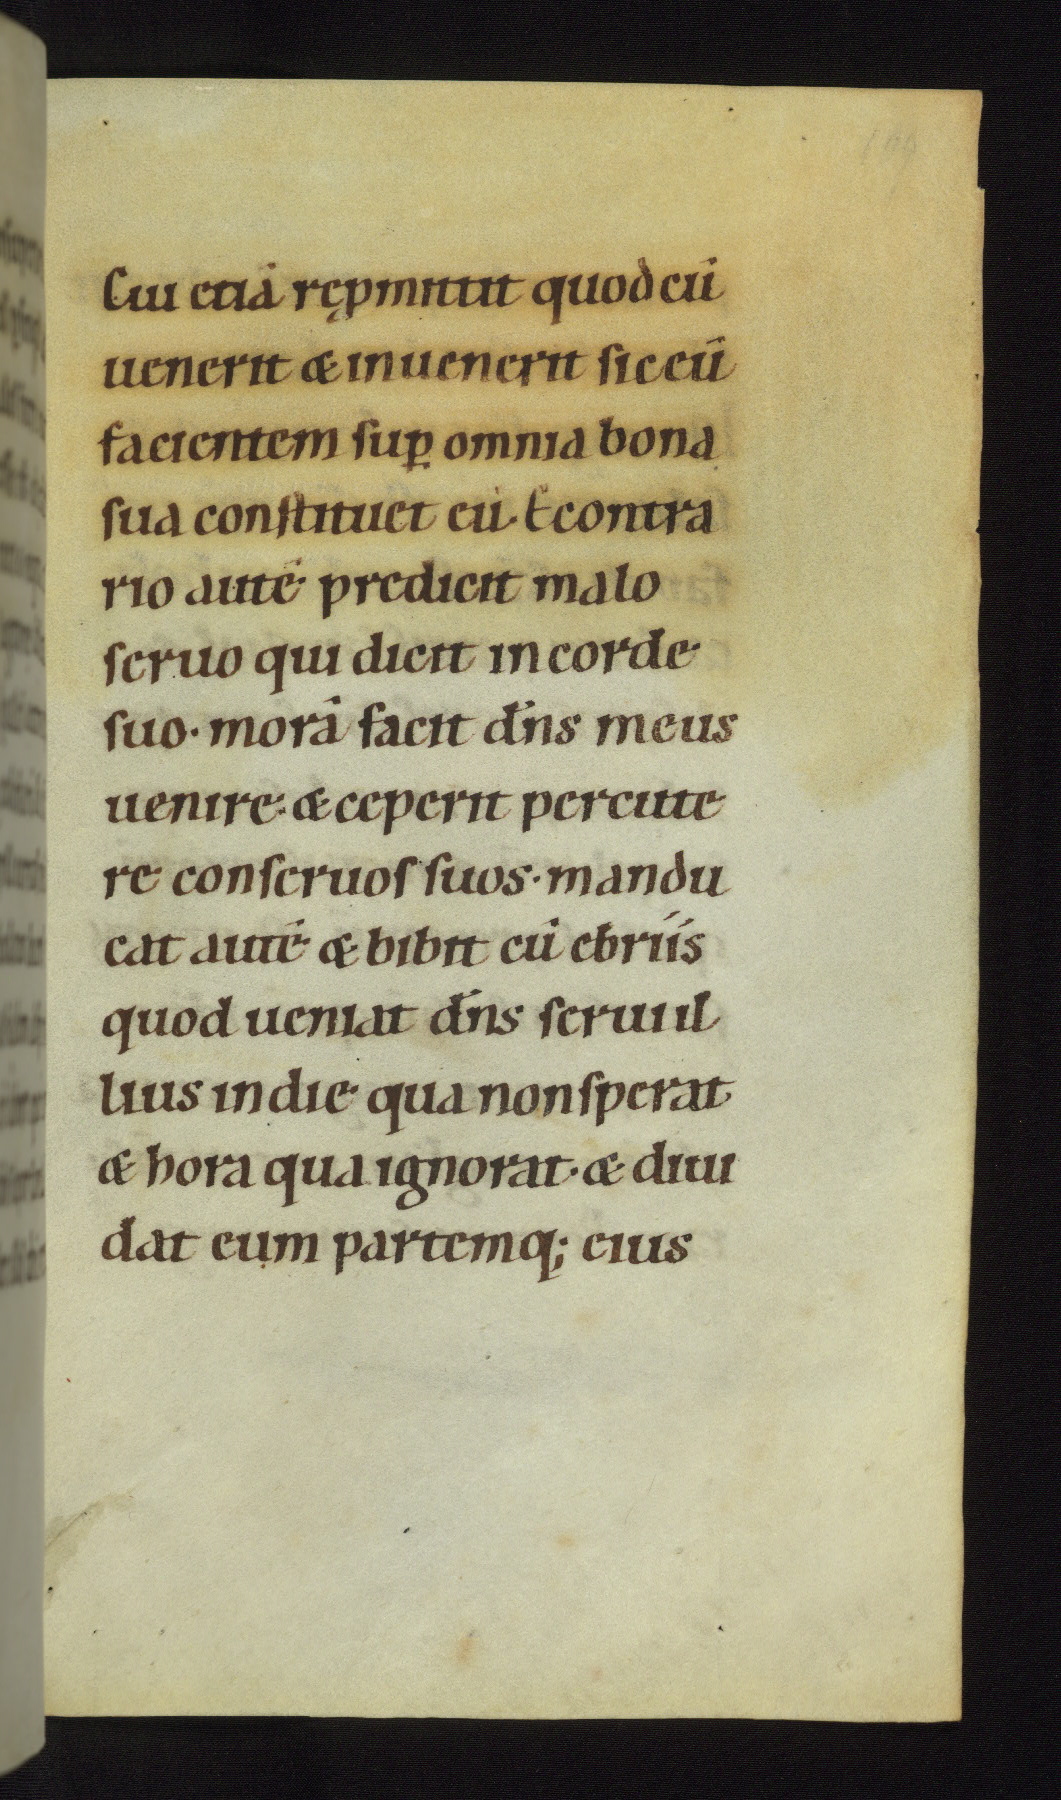 Cui etiā rępmittit quod cū
uenerit & inuenerit sic eū
facientem sup̱ omnia bona
sua constituet eū. Econtra
rio autē predicit malo
seruo qui dicit in corde
suo. morā facit dn̄s meus
uenire. & ceperit percutte
re conseruos suos. mandu
cat autē & bibit cū ebriis
quod ueniat dn̄s serui il
lius in die qua non sperat
& hora qua ignorat. & diui
dat eum partemq; eius